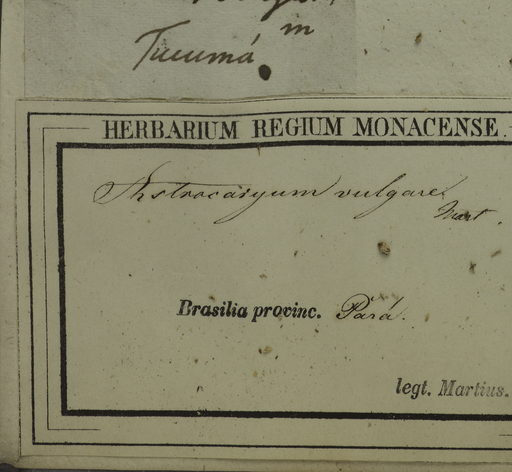 Tucumá
m
HERBARIUM REGIUM MONACENSE.
Astrocaryum vulgare
Mart.
Brasilia provinc. Pará.
legt. Martius.